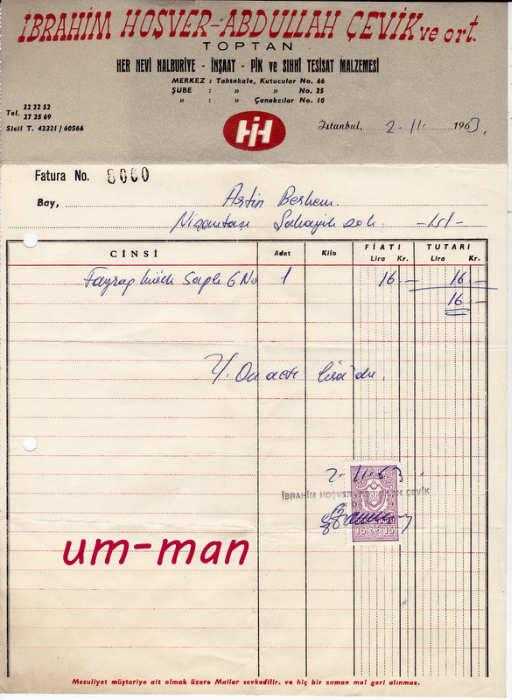 İBRAHİM HOŞVER-ABDULLAH ÇEVİK ve ort.
TOPTAN
HER NEVİ NALBURİYE - İNŞAAT - PİK ve SIHHİ TESİSAT MALZEMESİ
MERKEZ : Tahtakale, Kutucular No. 66
ŞUBE : » » No. 25
» : » Çanakcılar No. 10
Tel. 22 32 52
27 25 69
Sicil T. 42221 / 60566
HİH
İstanbul, 2-11-1963.
Fatura No. 6060
Bay, Artin
Nişantaşı
CİNSİ Adet Kilo FİATI TUTARI
Lira Kr. Lira Kr.
Saplı 6 No 1 16.- 16.-
16.-
Y. On altı liradır.
2-11-63.
İBRAHİM HOŞVER ÇEVİK
um-man
Mesuliyet müşteriye ait olmak üzere Mallar sevkedilir. ve hiç bir zaman mal geri alınmaz.